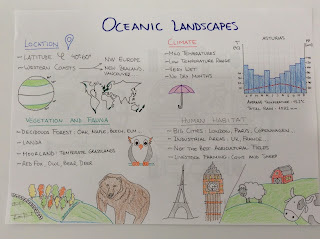 OCEANIC LANDSCAPES
LOCATION
- LATITUDE
40º-60º
- WESTERN COASTS
NW EUROPE
NEW ZEALAND
VANCOUVER
CLIMATE
- MILD TEMPERATURES
- LOW TEMPERATURE RANGE
- VERY WET
- NO DRY MONTHS
ASTURIAS
AVERAGE TEMPERATURE
TOTAL RAIN
VEGETATION AND FAUNA
- DECIDUOUS FOREST: OAK, MAPLE, BEECH, ELM...
- LANDA
- MOORLAND: TEMPERATE GRASSLANDS
- RED FOX, OWL, BEAR, DEER
HUMAN HABITAT
- BIG CITIES: LONDON, PARIS, COPENHAGEN...
- INDUSTRIAL AREAS: UK, FRANCE...
- NOT THE BEST AGRICULTURAL FIELDS
- LIVESTOCK FARMING: COWS AND SHEEP